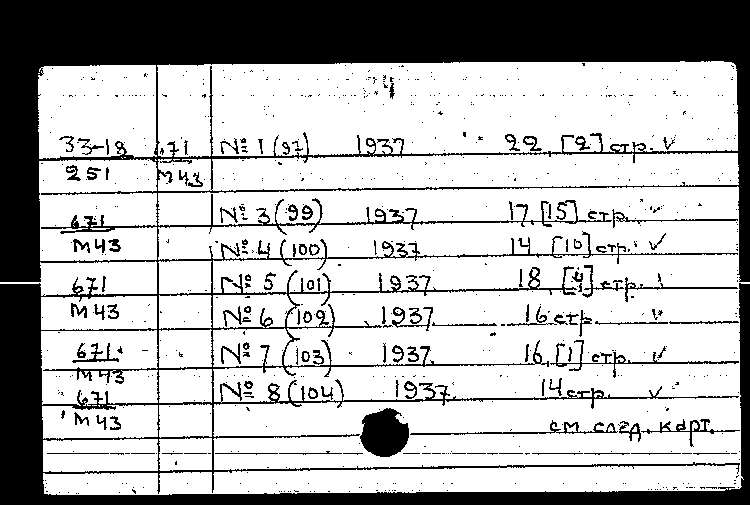 4
33-18 671 № 1 (97) 1937 22, [2] стр. v
251 М43
671 № 3 (99) 1937 17, [15] стр. v
М43 № 4 (100) 1937 14, [10] стр. v
671 № 5 (101) 1937 18, [4] стр.
М43 № 6 (102) 1937 16 стр. v
671 № 7 (103) 1937. 16, [1] стр. v
М43
671 № 8 (104) 1937. 14 стр. v
М43 см. след. карт.